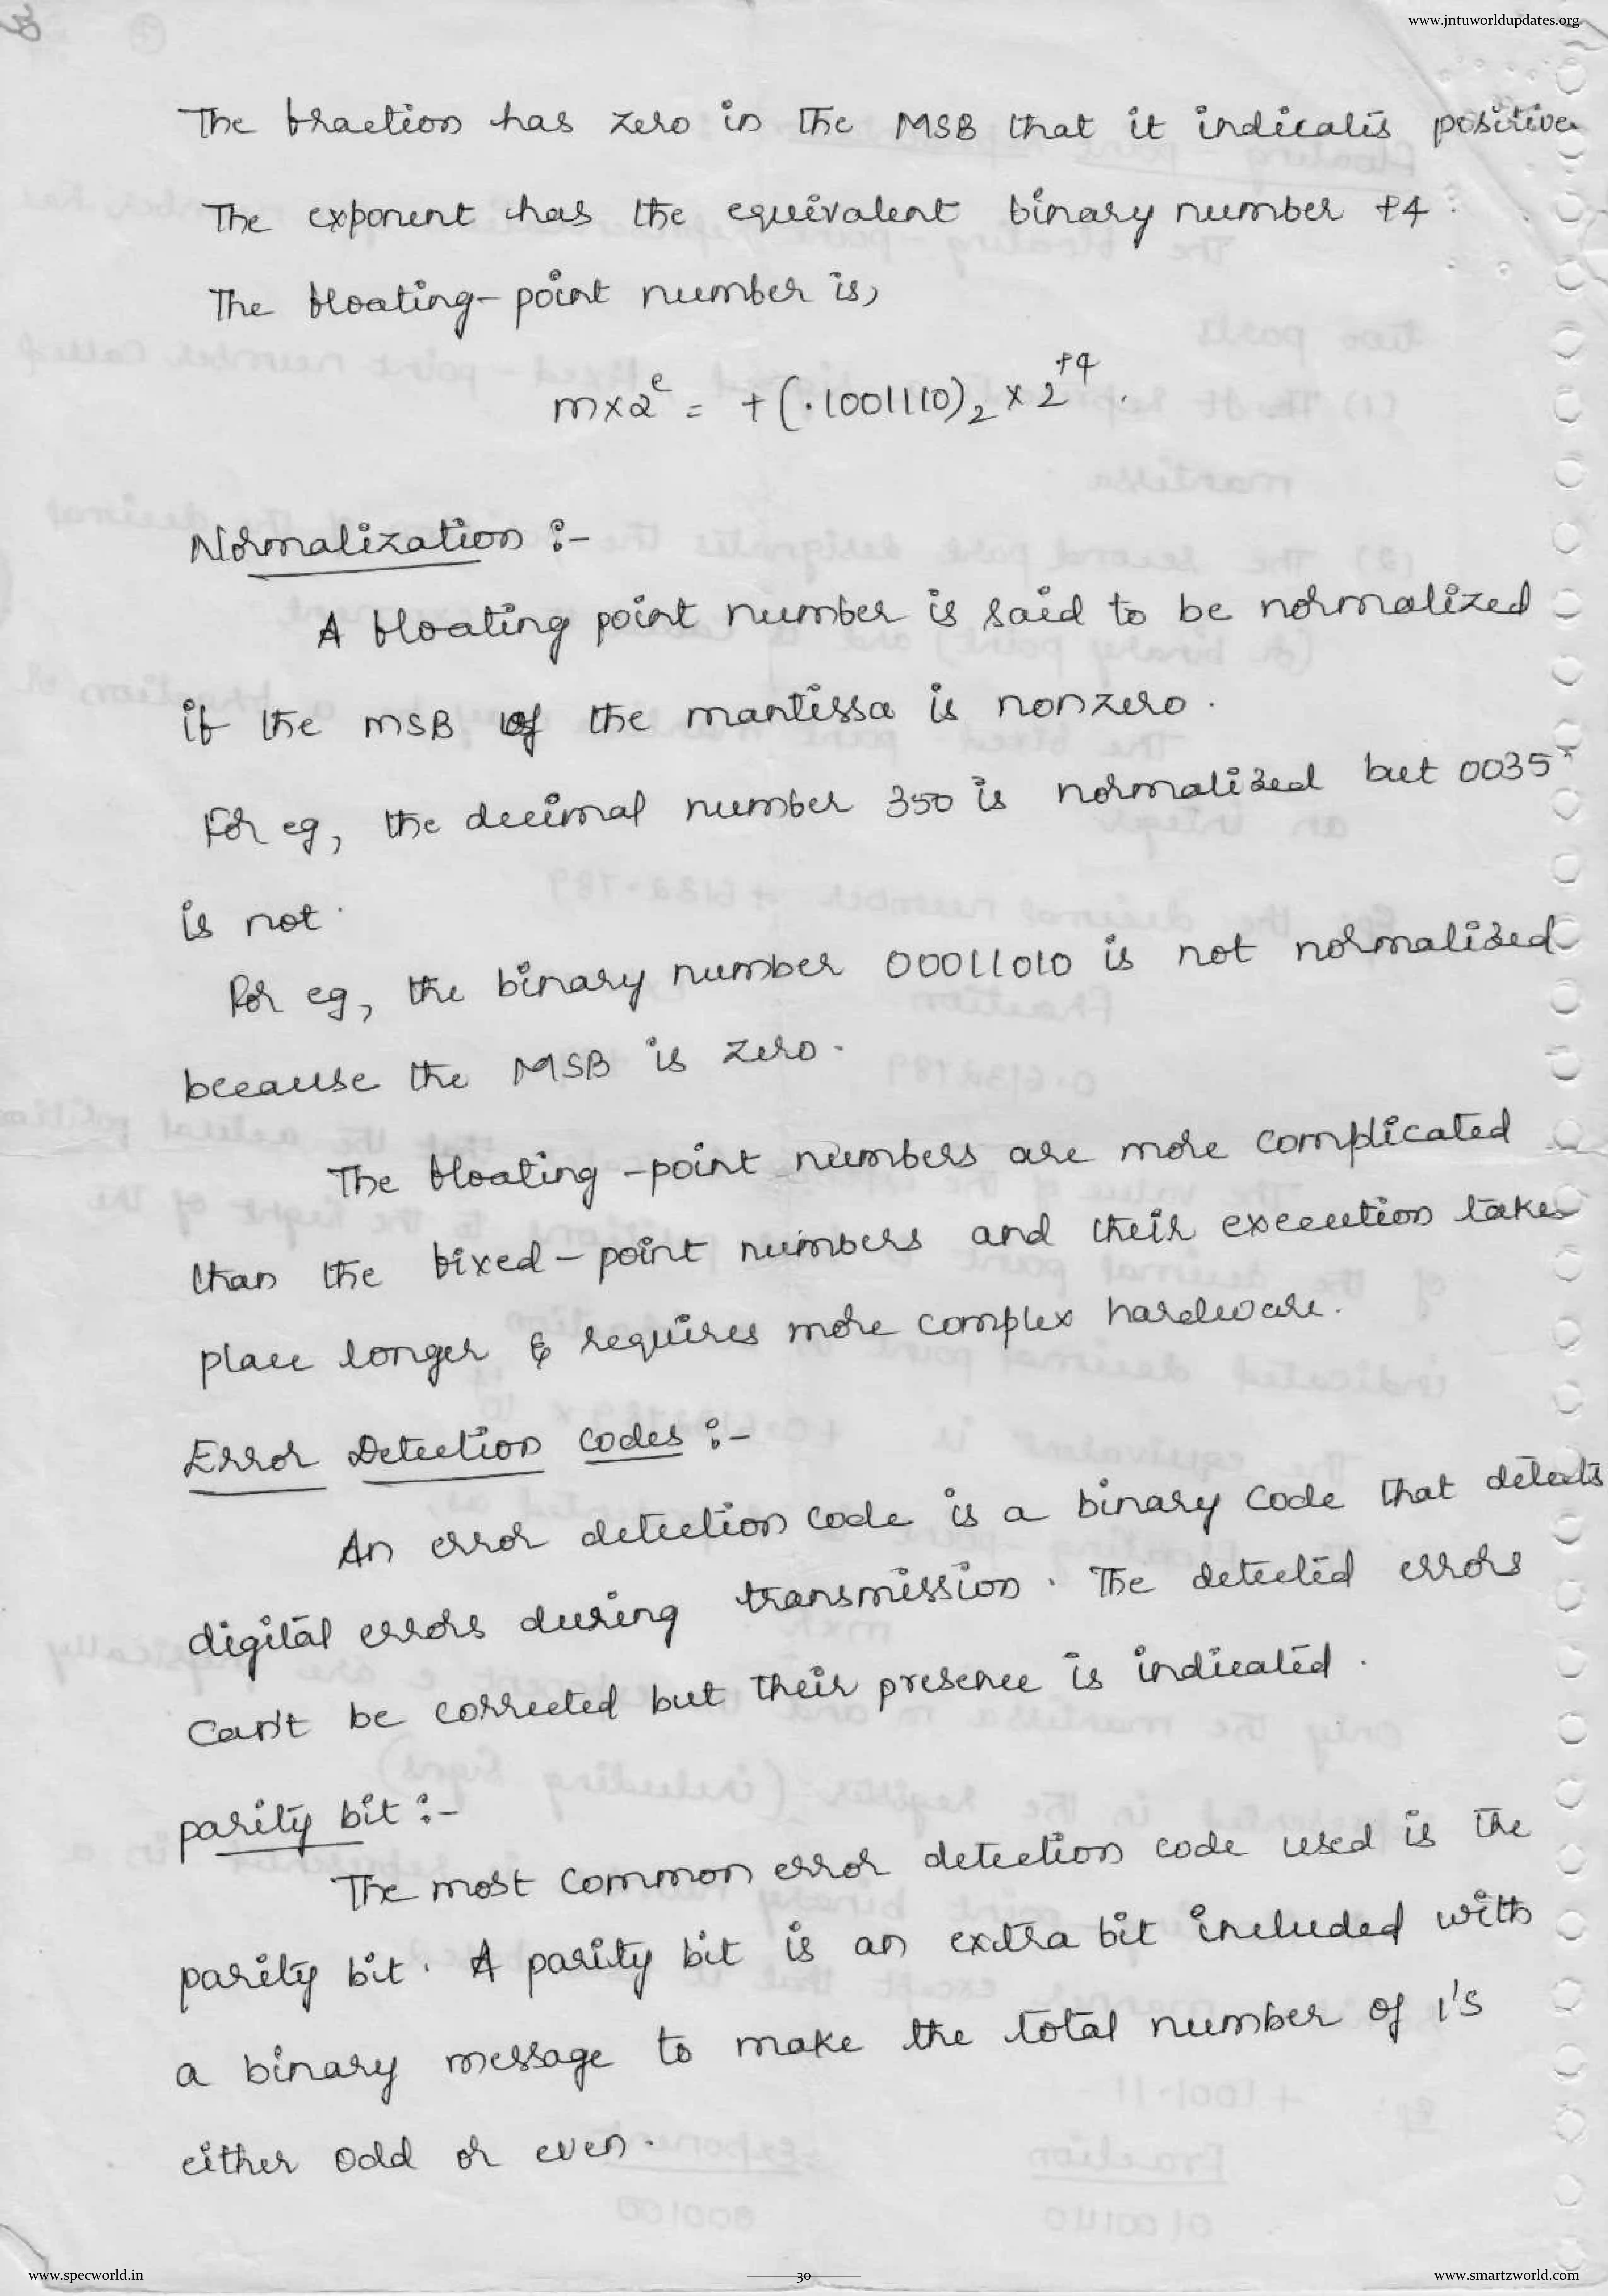 www.jntuworldupdates.org
The fraction has zero in the MSB that it indicates positive
The exponent has the equivalent binary number +4.
The floating-point number is,
m×2^e = +(.1001110)₂ × 2^+4.
Normalization :-
A floating point number is said to be normalized
if the MSB of the mantissa is nonzero.
For eg, the decimal number 350 is normalized but 0035
is not.
For eg, the binary number 00011010 is not normalized
because the MSB is zero.
The floating-point numbers are more complicated
than the fixed-point numbers and their execution takes
place longer & requires more complex hardware.
Error Detection codes :-
An error detection code is a binary code that detects
digital errors during transmission. The detected errors
Can't be corrected but their presence is indicated.
parity bit :-
The most common error detection code used is the
parity bit. A parity bit is an extra bit included with
a binary message to make the total number of 1's
either odd or even.
www.specworld.in
30
www.smartzworld.com